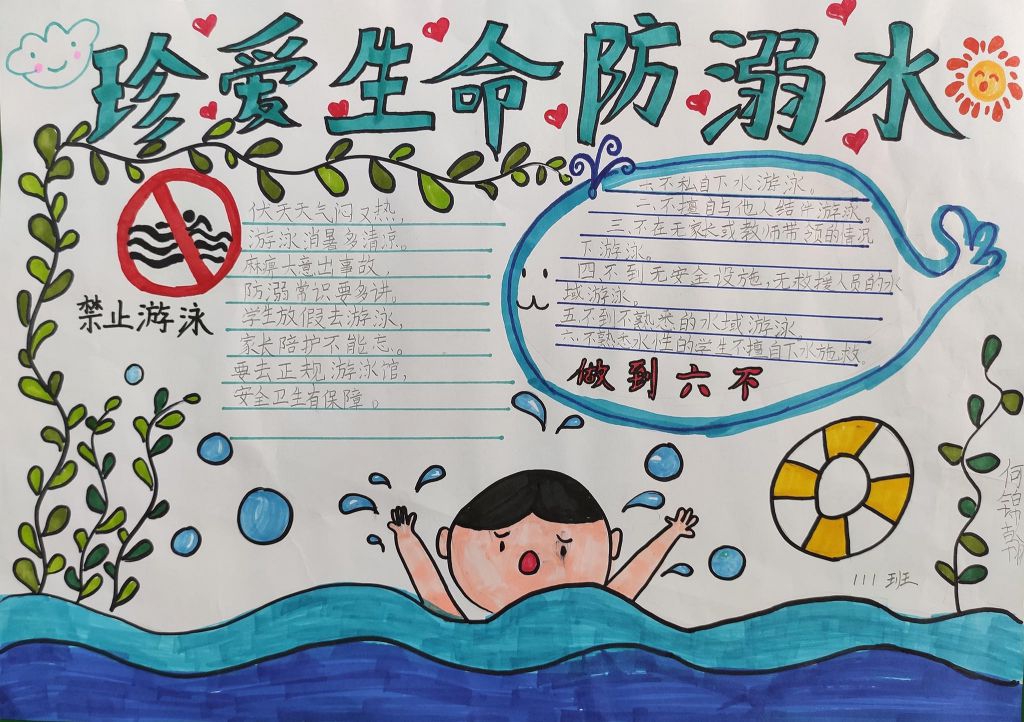 珍爱生命防溺水
禁止游泳
伏天天气闷又热,
游泳消暑多清凉。
麻痹大意出事故,
防溺常识要多讲。
学生放假去游泳,
家长陪护不能忘。
要去正规游泳馆,
安全卫生有保障。
一不私自下水游泳。
二、不擅自与他人结伴游泳。
三、不在无家长或教师带领的情况
下游泳。
四、不到无安全设施,无救援人员的水
域游泳。
五、不到不熟悉的水域游泳
六、不熟悉水性的学生不擅自下水施救。
做到六不
111班
何锦